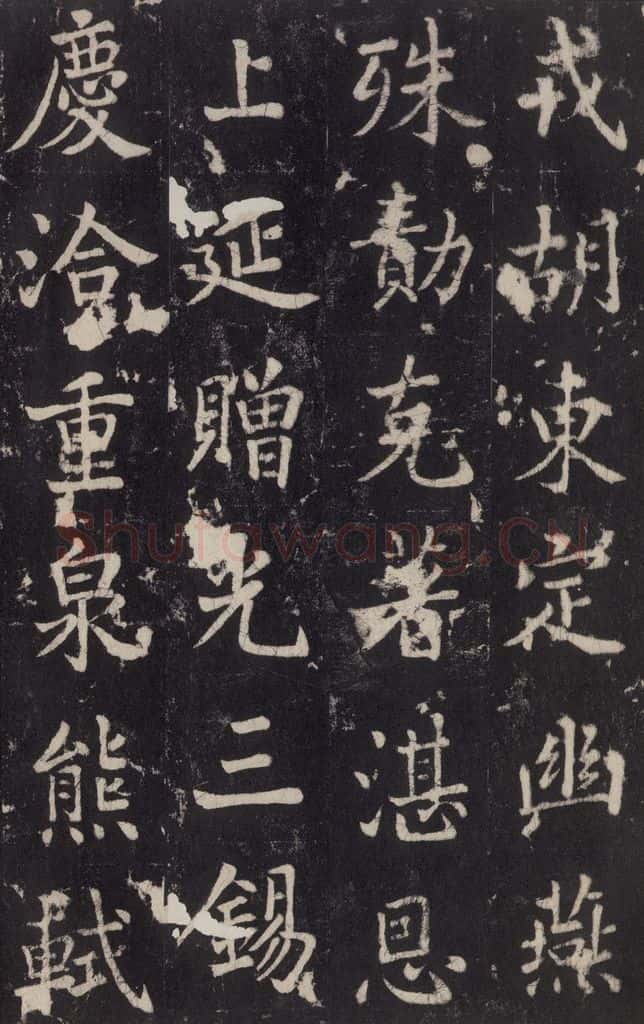 戎胡東定幽燕
殊勣克著湛恩
上延贈光三錫
慶洽重泉熊軾
Shufawang.CN